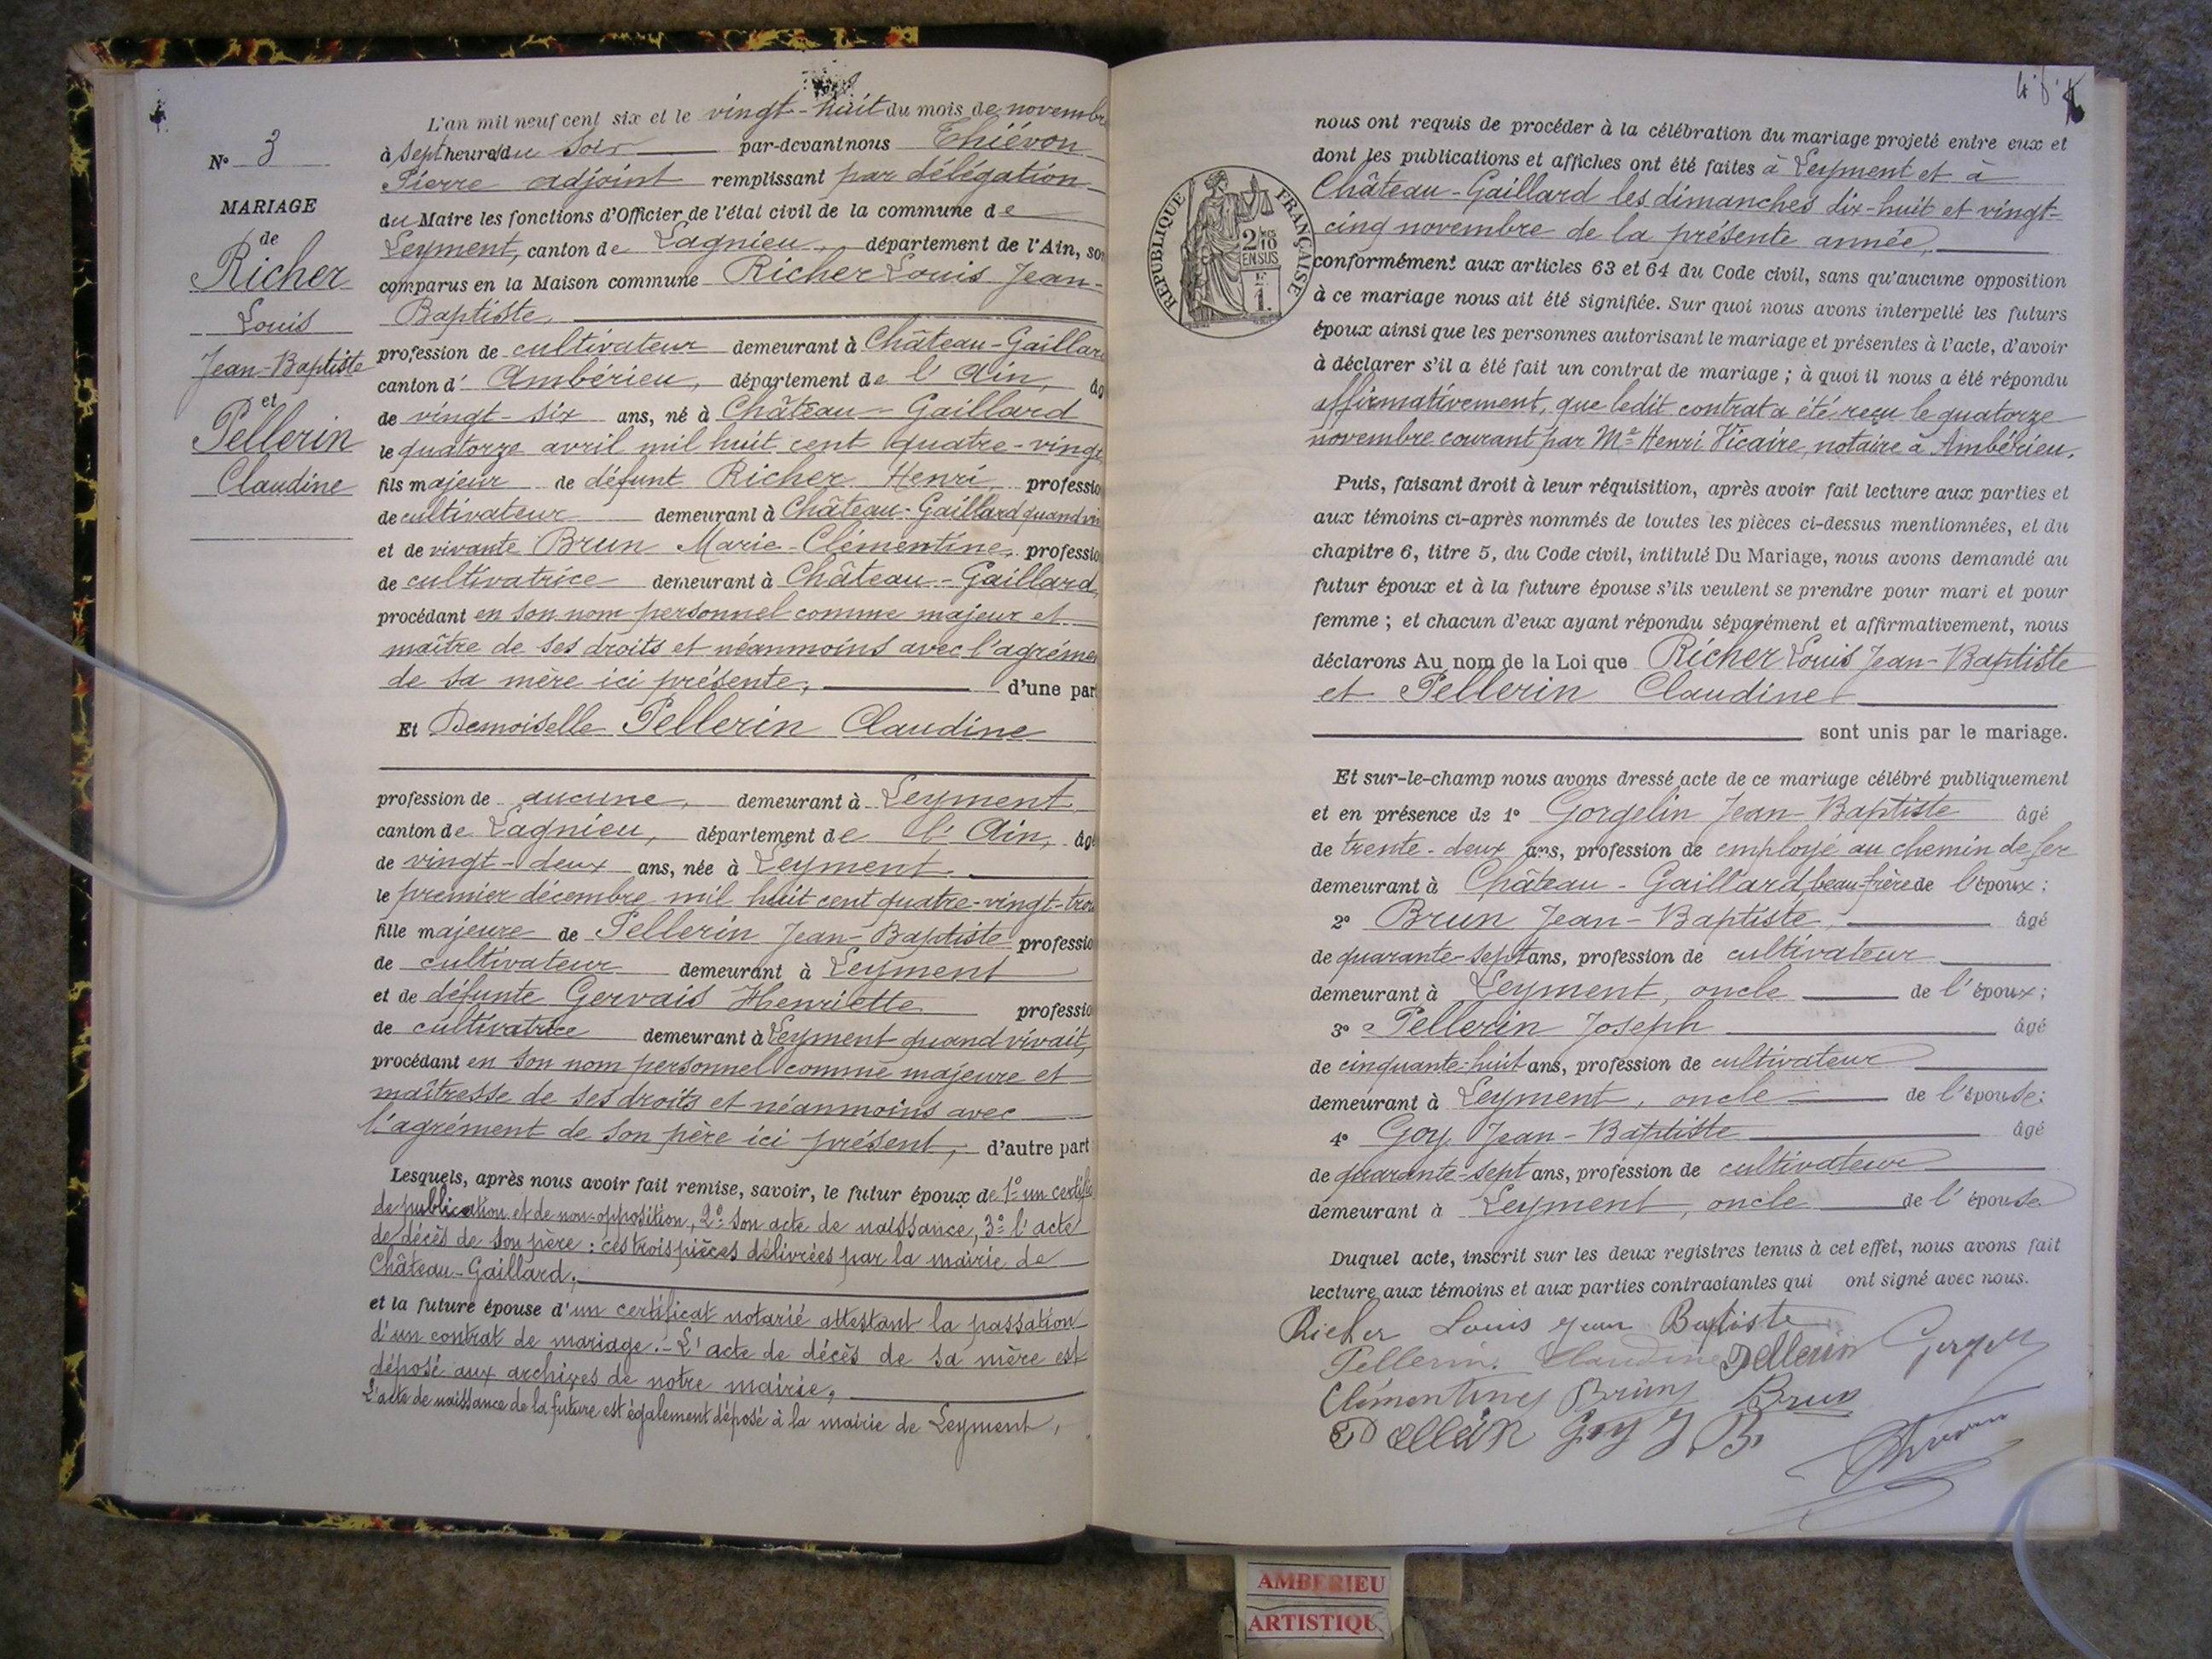 N° 3
MARIAGE
de
Richer
Louis
Jean-Baptiste
et
Pellerin
Claudine
L'an mil neuf cent six et le vingt-huit du mois de novembre
à sept heures du soir par-devant nous Thiévon
Pierre adjoint remplissant par délégation
du Maire les fonctions d'Officier de l'état civil de la commune de
Leyment, canton de Lagnieu, département de l'Ain, son
comparus en la Maison commune Richer Louis Jean-
Baptiste
profession de cultivateur demeurant à Château-Gaillard
canton d' Ambérieu, département de l'Ain, âg
de vingt-six ans, né à Château-Gaillard
le quatorze avril mil huit cent quatre-vingt
fils majeur de défunt Richer Henri, professio
de cultivateur demeurant à Château-Gaillard quand viv
et de vivante Brun Marie-Clémentine, professio
de cultivatrice demeurant à Château-Gaillard,
procédant en son nom personnel comme majeur et
maître de ses droits et néanmoins avec l'agrémen
de sa mère ici présente, d'une part
Et Demoiselle Pellerin Claudine
profession de aucune, demeurant à Leyment
canton de Lagnieu, département de l'Ain, âgé
de vingt-deux ans, née à Leyment
le premier décembre mil huit cent quatre-vingt-trois
fille majeure de Pellerin Jean-Baptiste professio
de cultivateur demeurant à Leyment
et de défunte Gervais Henriette professio
de cultivatrice demeurant à Leyment quand vivait,
procédant en son nom personnel comme majeure et
maîtresse de ses droits et néanmoins avec
l'agrément de son père ici présent, d'autre part
Lesquels, après nous avoir fait remise, savoir, le futur époux de 1° un certific
de publication et de non-opposition, 2° son acte de naissance, 3° l'acte
de décès de son père : ces trois pièces délivrées par la mairie de
Château-Gaillard,
et la future épouse d'un certificat notarié attestant la passation
d'un contrat de mariage.- L'acte de décès de sa mère est
déposé aux archives de notre mairie,
L'acte de naissance de la future est également déposé à la mairie de Leyment,
nous ont requis de procéder à la célébration du mariage projeté entre eux et
dont les publications et affiches ont été faites à Leyment et à
Château-Gaillard les dimanches dix-huit et vingt-
cinq novembre de la présente année,
RÉPUBLIQUE FRANÇAISE
2/10
EN SUS
1
conformément aux articles 63 et 64 du Code civil, sans qu'aucune opposition
à ce mariage nous ait été signifiée. Sur quoi nous avons interpellé les futurs
époux ainsi que les personnes autorisant le mariage et présentes à l'acte, d'avoir
à déclarer s'il a été fait un contrat de mariage ; à quoi il nous a été répondu
affirmativement, que ledit contrat a été reçu le quatorze
novembre courant par Me Henri Vicaire, notaire à Ambérieu.
Puis, faisant droit à leur réquisition, après avoir fait lecture aux parties et
aux témoins ci-après nommés de toutes les pièces ci-dessus mentionnées, et du
chapitre 6, titre 5, du Code civil, intitulé Du Mariage, nous avons demandé au
futur époux et à la future épouse s'ils veulent se prendre pour mari et pour
femme ; et chacun d'eux ayant répondu séparément et affirmativement, nous
déclarons Au nom de la Loi que Richer Louis Jean-Baptiste
et Pellerin Claudine
sont unis par le mariage.
Et sur-le-champ nous avons dressé acte de ce mariage célébré publiquement
et en présence de 1° Gorgelin Jean-Baptiste âgé
de trente-deux ans, profession de employé au chemin de fer
demeurant à Château-Gaillard, beau-frère de l'époux ;
2° Brun Jean-Baptiste, âgé
de quarante-sept ans, profession de cultivateur
demeurant à Leyment, oncle de l'époux ;
3° Pellerin Joseph âgé
de cinquante-huit ans, profession de cultivateur
demeurant à Leyment, oncle de l'épouse ;
4° Goy Jean-Baptiste âgé
de quarante-sept ans, profession de cultivateur
demeurant à Leyment, oncle de l'épouse
Duquel acte, inscrit sur les deux registres tenus à cet effet, nous avons fait
lecture aux témoins et aux parties contractantes qui ont signé avec nous.
Richer Louis Jean Baptiste
Pellerin Claudine Pellerin
Clémentine Brun Brun
Pellerin Goy J B
AMBERIEU
ARTISTIQU